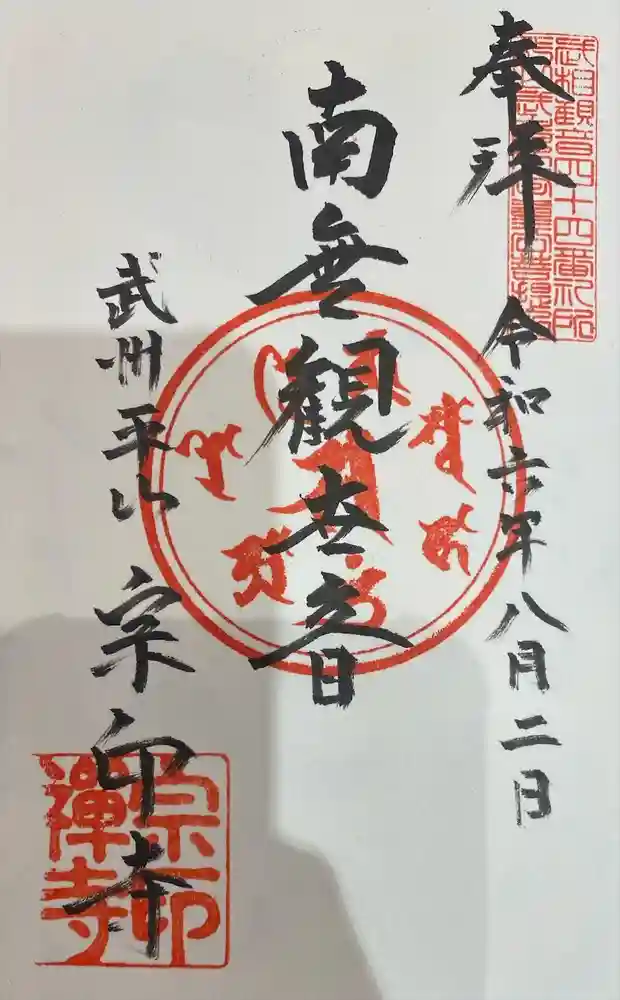 奉拝 令和六年八月二日
武相観音四十四番札所
南無観世音
武州平山 宗印寺
宗印禅寺